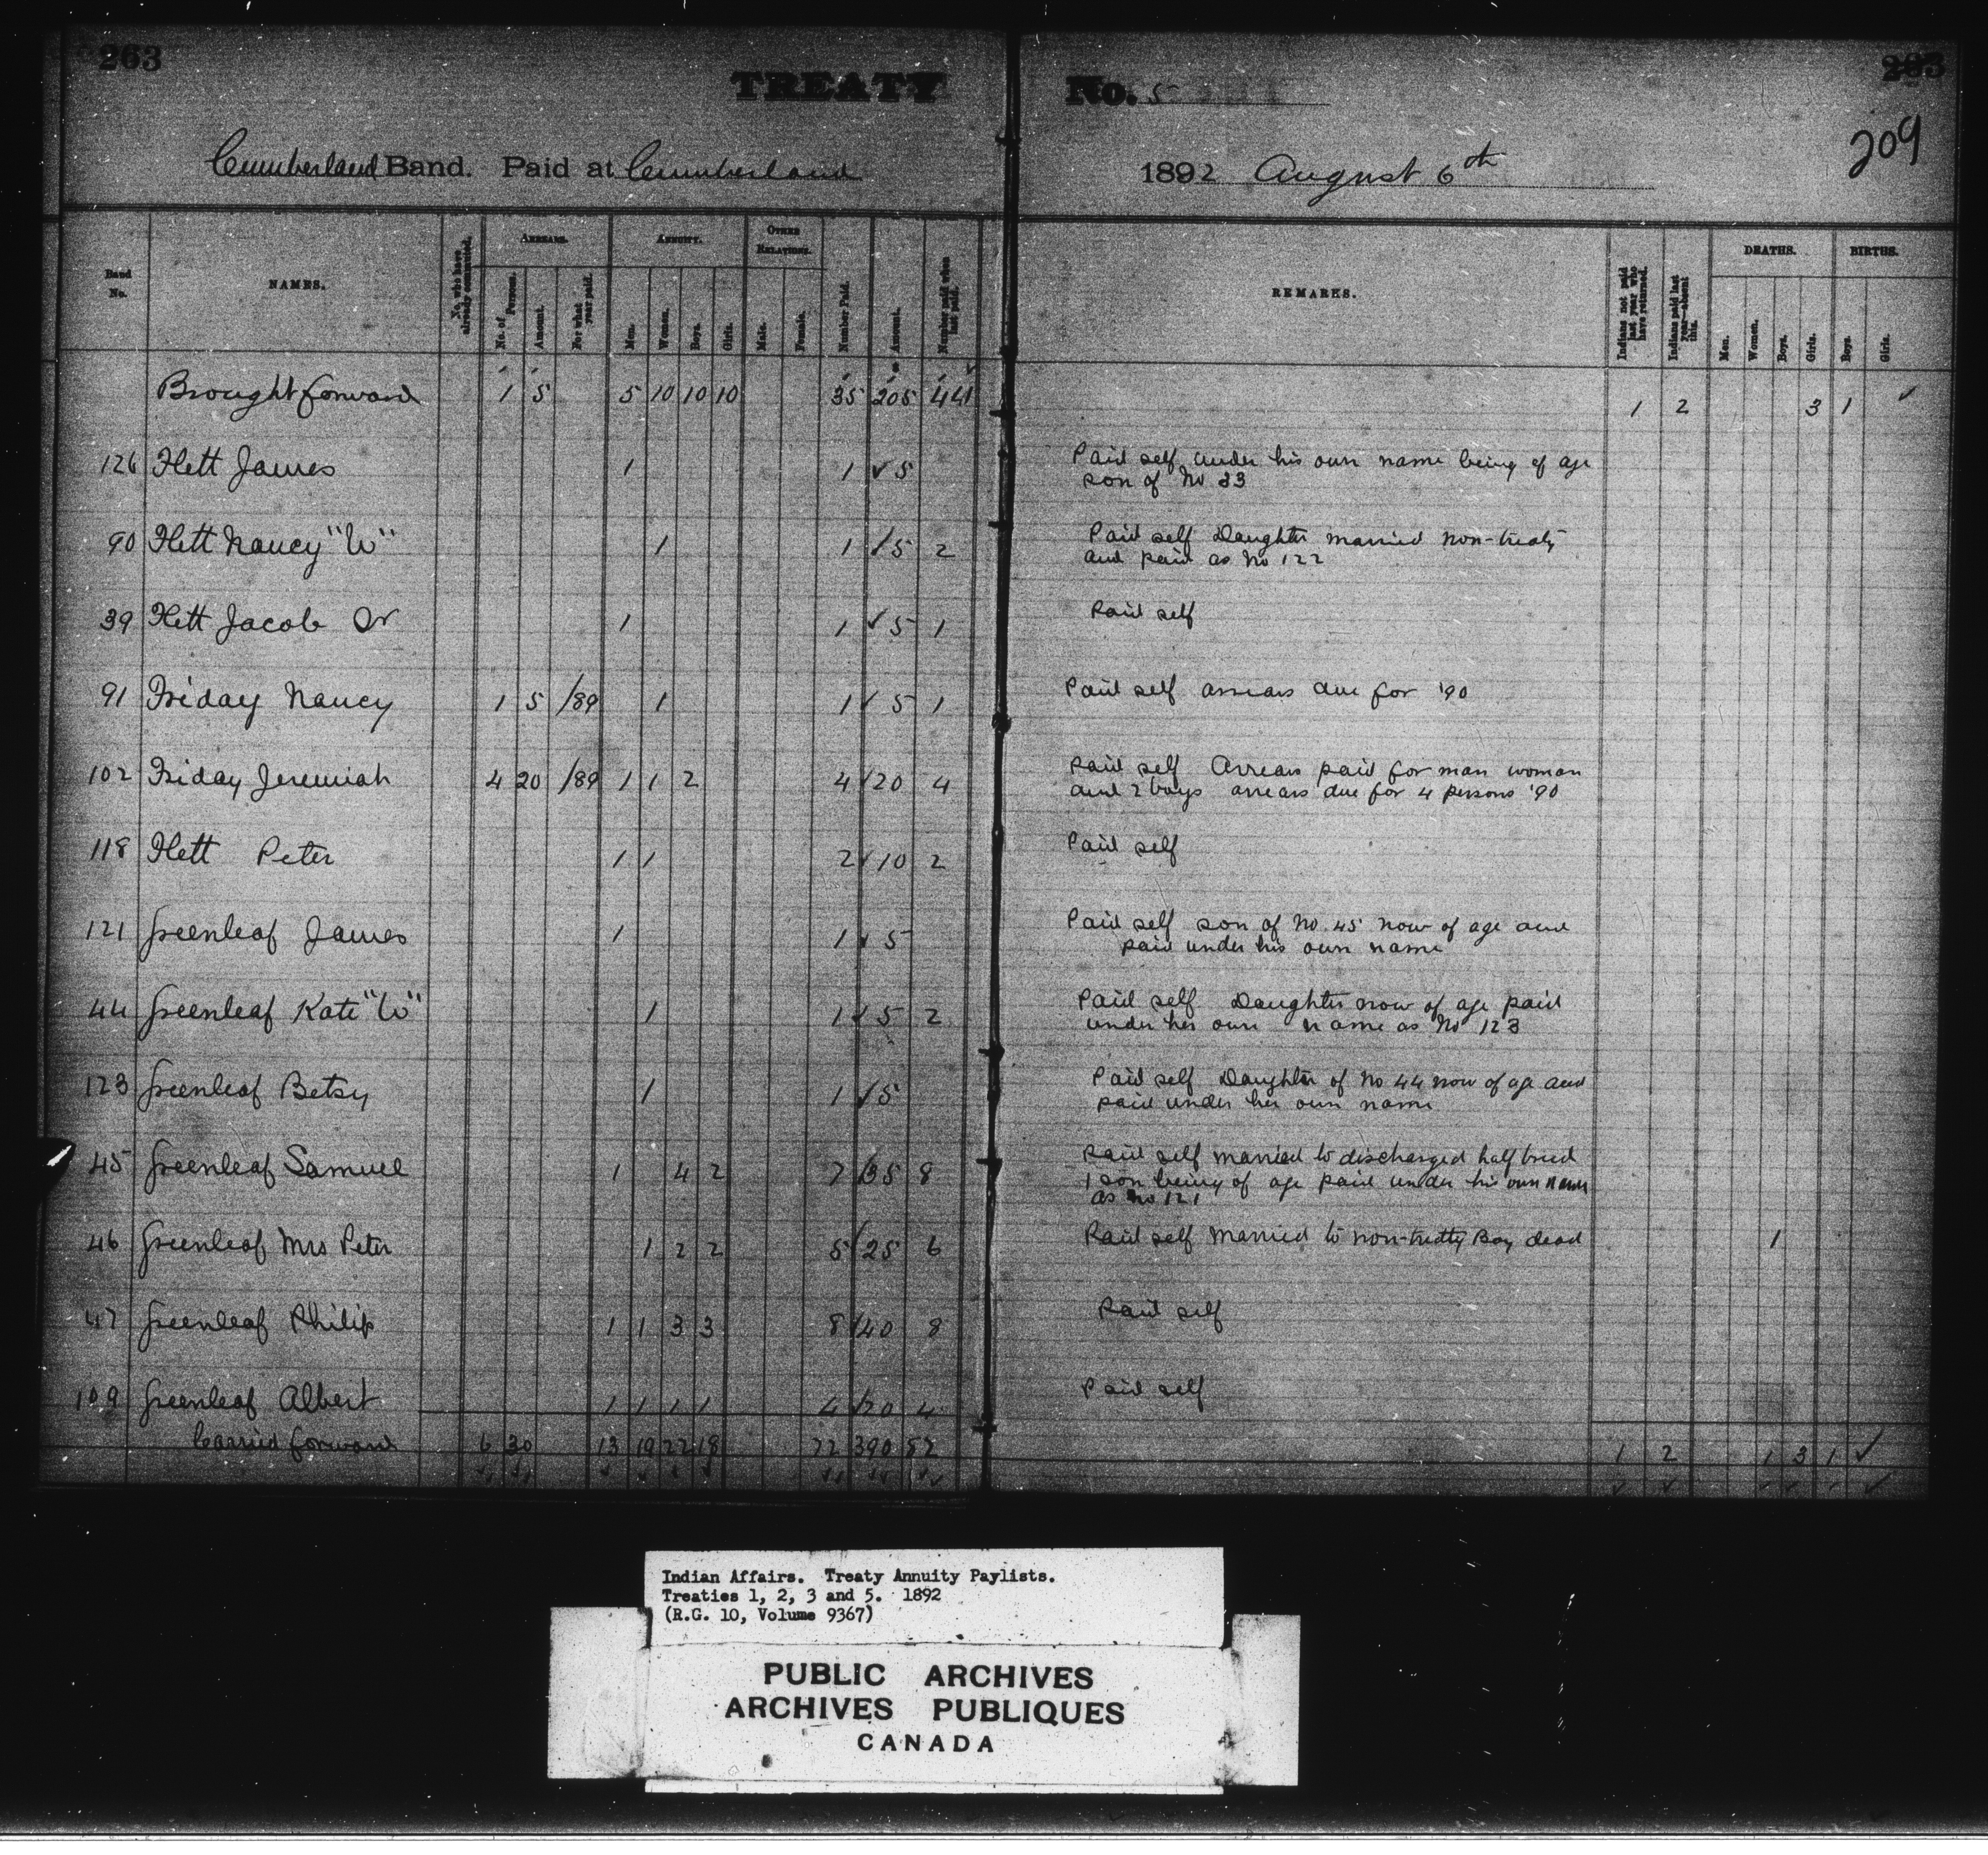 263
TREATY No. 5
283
209
Cumberland Band. Paid at Cumberland 1892 August 6th
Band No.
NAMES.
No. who have already commuted.
ARREARS.
No. of Persons.
Amount.
For what year paid.
ANNUITY.
Men.
Women.
Boys.
Girls.
OTHER RELATIONS.
Male.
Female.
Number Paid.
Amount.
Number paid when last paid.
REMARKS.
Indians not paid last year who have returned.
Indians paid last year—absent this.
DEATHS.
Men.
Women.
Boys.
Girls.
BIRTHS.
Boys.
Girls.
Brought forward 1 5 5 10 10 10 35 205 44 1 2 3 1
126 Flett James 1 1 5 Paid self under his own name being of age
son of No 33
90 Flett Nancy "W" 1 1 5 2 Paid self Daughter married non-treaty
and paid as No 122
39 Flett Jacob Sr 1 1 5 1 Paid self
91 Friday Nancy 1 5 /89 1 1 5 1 Paid self arrears due for '90
102 Friday Jeremiah 4 20 /89 1 1 2 4 20 4 Paid self Arrears paid for man woman
and 2 boys arrears due for 4 persons '90
118 Flett Peter 1 1 2 10 2 Paid self
121 Greenleaf James 1 1 5 Paid self son of No. 45 now of age and
paid under his own name
44 Greenleaf Kate "W" 1 1 5 2 Paid self Daughter now of age paid
under her own name as No 123
123 Greenleaf Betsy 1 1 5 Paid self Daughter of No 44 now of age and
paid under her own name
45 Greenleaf Samuel 1 4 2 7 35 8 Paid self married to discharged half breed
1 son being of age paid under his own name
as No 121
46 Greenleaf Mrs Peter 1 2 2 5 25 6 Paid self married to non-treaty Boy dead 1
47 Greenleaf Philip 1 1 3 3 8 40 8 Paid self
109 Greenleaf Albert 1 1 1 1 4 20 4 Paid self
Carried forward 6 30 13 19 22 18 72 390 82 1 2 1 3 1
Indian Affairs. Treaty Annuity Paylists.
Treaties 1, 2, 3 and 5. 1892
(R.G. 10, Volume 9367)
PUBLIC ARCHIVES
ARCHIVES PUBLIQUES
CANADA